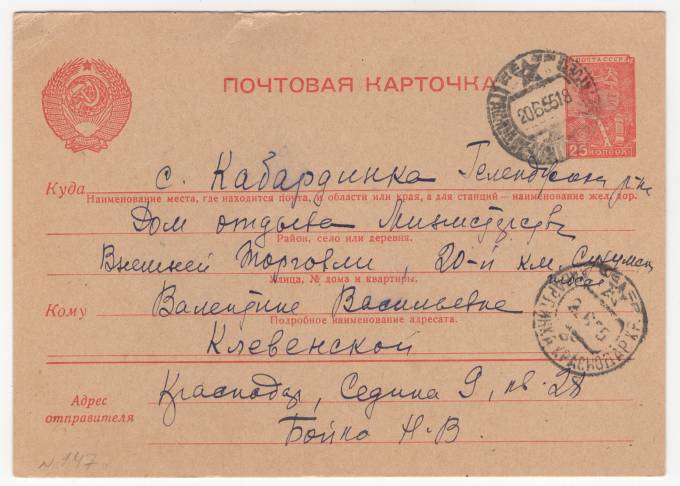 ПОЧТОВАЯ КАРТОЧКА
ПОЧТА СССР
25 КОПЕЕК
20655 18
Куда с. Кабардинка Геленджик р-на
Наименование места, где находится почта, и области или края, а для станций — наименование жел. дор.
Дом отдыха Министерства
Район, село или деревня.
Внешней Торговли, 20-й км. Сухумск
шоссе
Улица, № дома и квартиры.
Кому Валентине Васильевне
Подробное наименование адресата.
Клевенской
КРАСНОДАР
Адрес отправителя
Краснодар, Седина 9, кв. 28
Бойко Н. В.
N 147